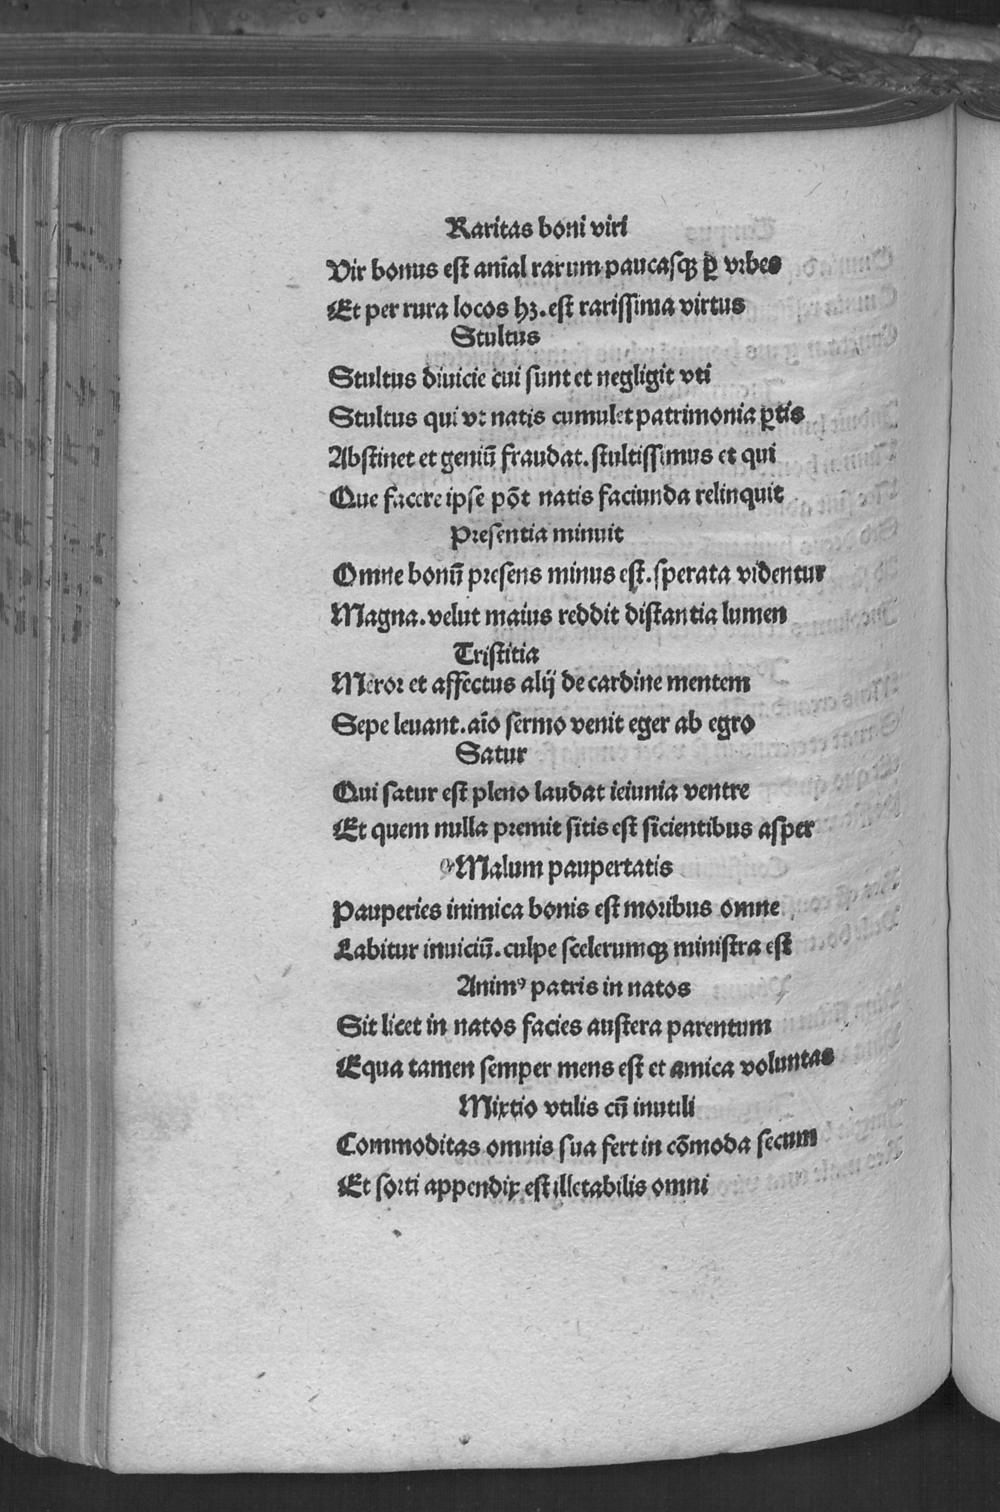 Raritas boni viri
Vir bonus est anīal rarum paucasqꝫ ꝑ vrbes
Et per rura locos hꝫ. est rarissima virtus
Stultus
Stultus diuicie cui sunt et negligit vti
Stultus qui vt natis cumulet patrimonia ꝑtis
Abstinet et geniū fraudat. stultissimus et qui
Que facere ipse põt natis faciunda relinquit
Presentia minuit
Omne bonū presens minus est. sperata videntur
Magna. velut maius reddit distantia lumen
Tristitia
Meror et affectus alij de cardine mentem
Sepe leuant. aīo sermo venit eger ab egro
Satur
Qui satur est pleno laudat ieiunia ventre
Et quem nulla premit sitis est sicientibus asper
Malum paupertatis
Pauperies inimica bonis est moribus omne
Labitur inuiciū. culpe scelerumqꝫ ministra est
Animꝰ patris in natos
Sit licet in natos facies austera parentum
Equa tamen semper mens est et amica voluntas
Mixtio vtilis cū inutili
Commoditas omnis sua fert in cōmoda secum
Et sorti appendix est illetabilis omni